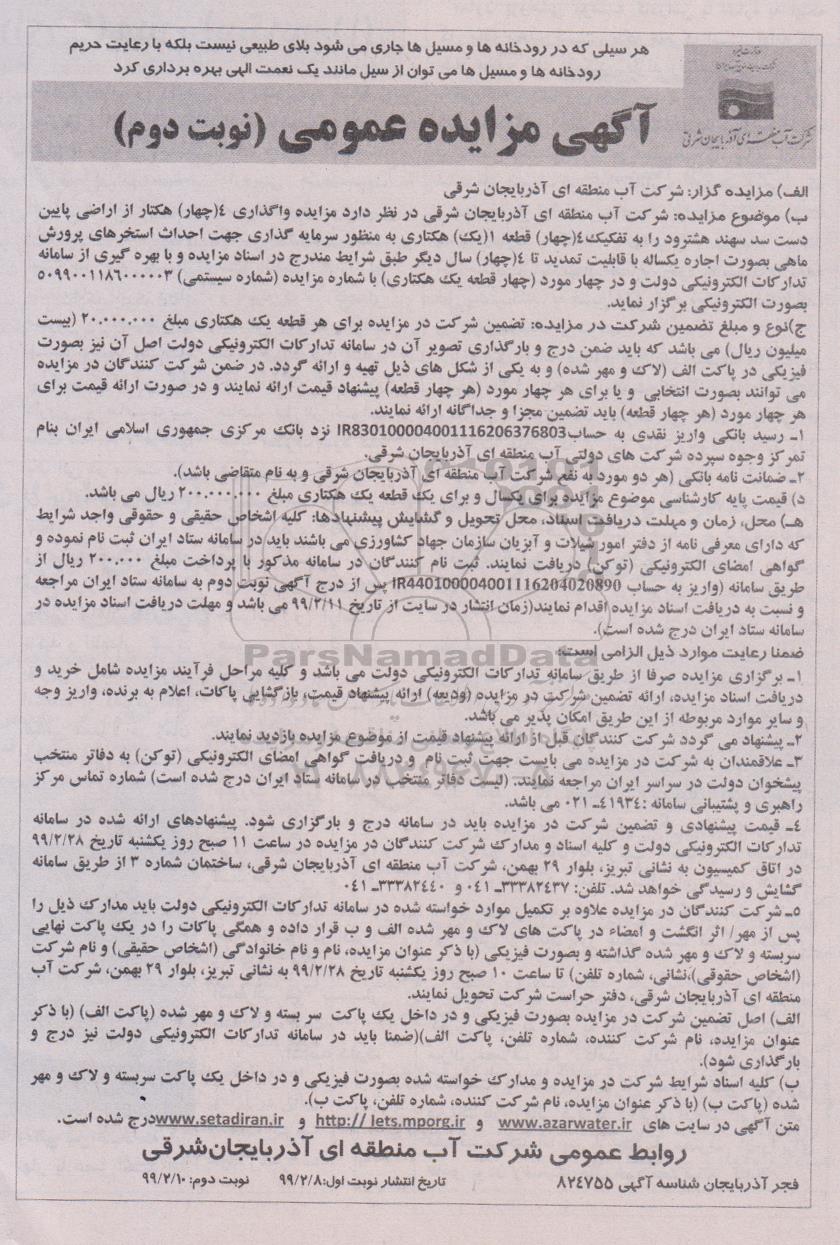 هر سیلی که در رودخانه ها و مسیل ها جاری می شود بلای طبیعی نیست بلکه با رعایت حریم
رودخانه ها و مسیل ها می توان از سیل مانند یک نعمت الهی بهره برداری کرد
شرکت آب منطقه ای آذربایجان شرقی
آگهی مزایده عمومی (نوبت دوم)
الف) مزایده گزار: شرکت آب منطقه ای آذربایجان شرقی
ب) موضوع مزایده: شرکت آب منطقه ای آذربایجان شرقی در نظر دارد مزایده واگذاری ٤(چهار) هکتار از اراضی پایین
دست سد سهند هشترود را به تفکیک٤(چهار) قطعه ١(یک) هکتاری به منظور سرمایه گذاری جهت احداث استخرهای پرورش
ماهی بصورت اجاره یکساله با قابلیت تمدید تا ٤(چهار) سال دیگر طبق شرایط مندرج در اسناد مزایده و با بهره گیری از سامانه
تدارکات الکترونیکی دولت و در چهار مورد (چهار قطعه یک هکتاری) با شماره مزایده (شماره سیستمی) ٥٠٩٩٠٠١١٨٦٠٠٠٠٠٣
بصورت الکترونیکی برگزار نماید.
ج)نوع و مبلغ تضمین شرکت در مزایده: تضمین شرکت در مزایده برای هر قطعه یک هکتاری مبلغ ٢٠.٠٠٠.٠٠٠ (بیست
میلیون ریال) می باشد که باید ضمن درج و بارگذاری تصویر آن در سامانه تدارکات الکترونیکی دولت اصل آن نیز بصورت
فیزیکی در پاکت الف (لاک و مهر شده) و به یکی از شکل های ذیل تهیه و ارائه گردد. در ضمن شرکت کنندگان در مزایده
می توانند بصورت انتخابی و یا برای هر چهار مورد (هر چهار قطعه) پیشنهاد قیمت ارائه نمایند و در صورت ارائه قیمت برای
هر چهار مورد (هر چهار قطعه) باید تضمین مجزا و جداگانه ارائه نمایند.
١ـ رسید بانکی واریز نقدی به حساب IR830100004001116206376803 نزد بانک مرکزی جمهوری اسلامی ایران بنام
تمرکز وجوه سپرده شرکت های دولتی آب منطقه ای آذربایجان شرقی.
٢ـ ضمانت نامه بانکی (هر دو مورد به نفع شرکت آب منطقه ای آذربایجان شرقی و به نام متقاضی باشد).
د) قیمت پایه کارشناسی موضوع مزایده برای یکسال و برای یک قطعه یک هکتاری مبلغ ٢٠٠.٠٠٠.٠٠٠ ریال می باشد.
هـ) محل، زمان و مهلت دریافت اسناد، محل تحویل و گشایش پیشنهادها: کلیه اشخاص حقیقی و حقوقی واجد شرایط
که دارای معرفی نامه از دفتر امور شیلات و آبزیان سازمان جهاد کشاورزی می باشند باید در سامانه ستاد ایران ثبت نام نموده و
گواهی امضای الکترونیکی (توکن) دریافت نمایند. ثبت نام کنندگان در سامانه مذکور با پرداخت مبلغ ٢٠٠.٠٠٠ ریال از
طریق سامانه (واریز به حساب IR440100004001116204020890 پس از درج آگهی نوبت دوم به سامانه ستاد ایران مراجعه
و نسبت به دریافت اسناد مزایده اقدام نمایند(زمان انتشار در سایت از تاریخ ٩٩/٢/١١ می باشد و مهلت دریافت اسناد مزایده در
سامانه ستاد ایران درج شده است).
ضمنا رعایت موارد ذیل الزامی است:
١ـ برگزاری مزایده صرفا از طریق سامانه تدارکات الکترونیکی دولت می باشد و کلیه مراحل فرآیند مزایده شامل خرید و
دریافت اسناد مزایده، ارائه تضمین شرکت در مزایده (ودیعه) ارائه پیشنهاد قیمت، بازگشایی پاکات، اعلام به برنده، واریز وجه
و سایر موارد مربوطه از این طریق امکان پذیر می باشد.
٢ـ پیشنهاد می گردد شرکت کنندگان قبل از ارائه پیشنهاد قیمت از موضوع مزایده بازدید نمایند.
٣ـ علاقمندان به شرکت در مزایده می بایست جهت ثبت نام و دریافت گواهی امضای الکترونیکی (توکن) به دفاتر منتخب
پیشخوان دولت در سراسر ایران مراجعه نمایند. (لیست دفاتر منتخب در سامانه ستاد ایران درج شده است) شماره تماس مرکز
راهبری و پشتیبانی سامانه :٤١٩٣٤ـ ٠٢١ می باشد.
٤ـ قیمت پیشنهادی و تضمین شرکت در مزایده باید در سامانه درج و بارگزاری شود. پیشنهادهای ارائه شده در سامانه
تدارکات الکترونیکی دولت و کلیه اسناد و مدارک شرکت کنندگان در مزایده در ساعت ١١ صبح روز یکشنبه تاریخ ٩٩/٢/٢٨
در اتاق کمیسیون به نشانی تبریز، بلوار ٢٩ بهمن، شرکت آب منطقه ای آذربایجان شرقی، ساختمان شماره ٣ از طریق سامانه
گشایش و رسیدگی خواهد شد. تلفن: ٣٣٣٨٢٤٣٧ـ ٠٤١ و ٣٣٣٨٢٤٤٠ـ ٠٤١
٥ـ شرکت کنندگان در مزایده علاوه بر تکمیل موارد خواسته شده در سامانه تدارکات الکترونیکی دولت باید مدارک ذیل را
پس از مهر/ اثر انگشت و امضاء در پاکت های لاک و مهر شده الف و ب قرار داده و همگی پاکات را در یک پاکت نهایی
سربسته و لاک و مهر شده گذاشته و بصورت فیزیکی (با ذکر عنوان مزایده، نام و نام خانوادگی (اشخاص حقیقی) و نام شرکت
(اشخاص حقوقی)،نشانی، شماره تلفن) تا ساعت ١٠ صبح روز یکشنبه تاریخ ٩٩/٢/٢٨ به نشانی تبریز، بلوار ٢٩ بهمن، شرکت آب
منطقه ای آذربایجان شرقی، دفتر حراست شرکت تحویل نمایند.
الف) اصل تضمین شرکت در مزایده بصورت فیزیکی و در داخل یک پاکت سر بسته و لاک و مهر شده (پاکت الف) (با ذکر
عنوان مزایده، نام شرکت کننده، شماره تلفن، پاکت الف)(ضمنا باید در سامانه تدارکات الکترونیکی دولت نیز درج و
بارگذاری شود).
ب) کلیه اسناد شرایط شرکت در مزایده و مدارک خواسته شده بصورت فیزیکی و در داخل یک پاکت سربسته و لاک و مهر
شده (پاکت ب) (با ذکر عنوان مزایده، نام شرکت کننده، شماره تلفن، پاکت ب).
متن آگهی در سایت های www.azarwater.ir و http:// Iets.mporg.ir و www.setadiran.ir درج شده است.
روابط عمومی شرکت آب منطقه ای آذربایجان‌شرقی
فجر آذربایجان شناسه آگهی ٨٢٤٧٥٥ تاریخ انتشار نوبت اول:٩٩/٢/٨ نوبت دوم: ٩٩/٢/١٠
ParsNamadData